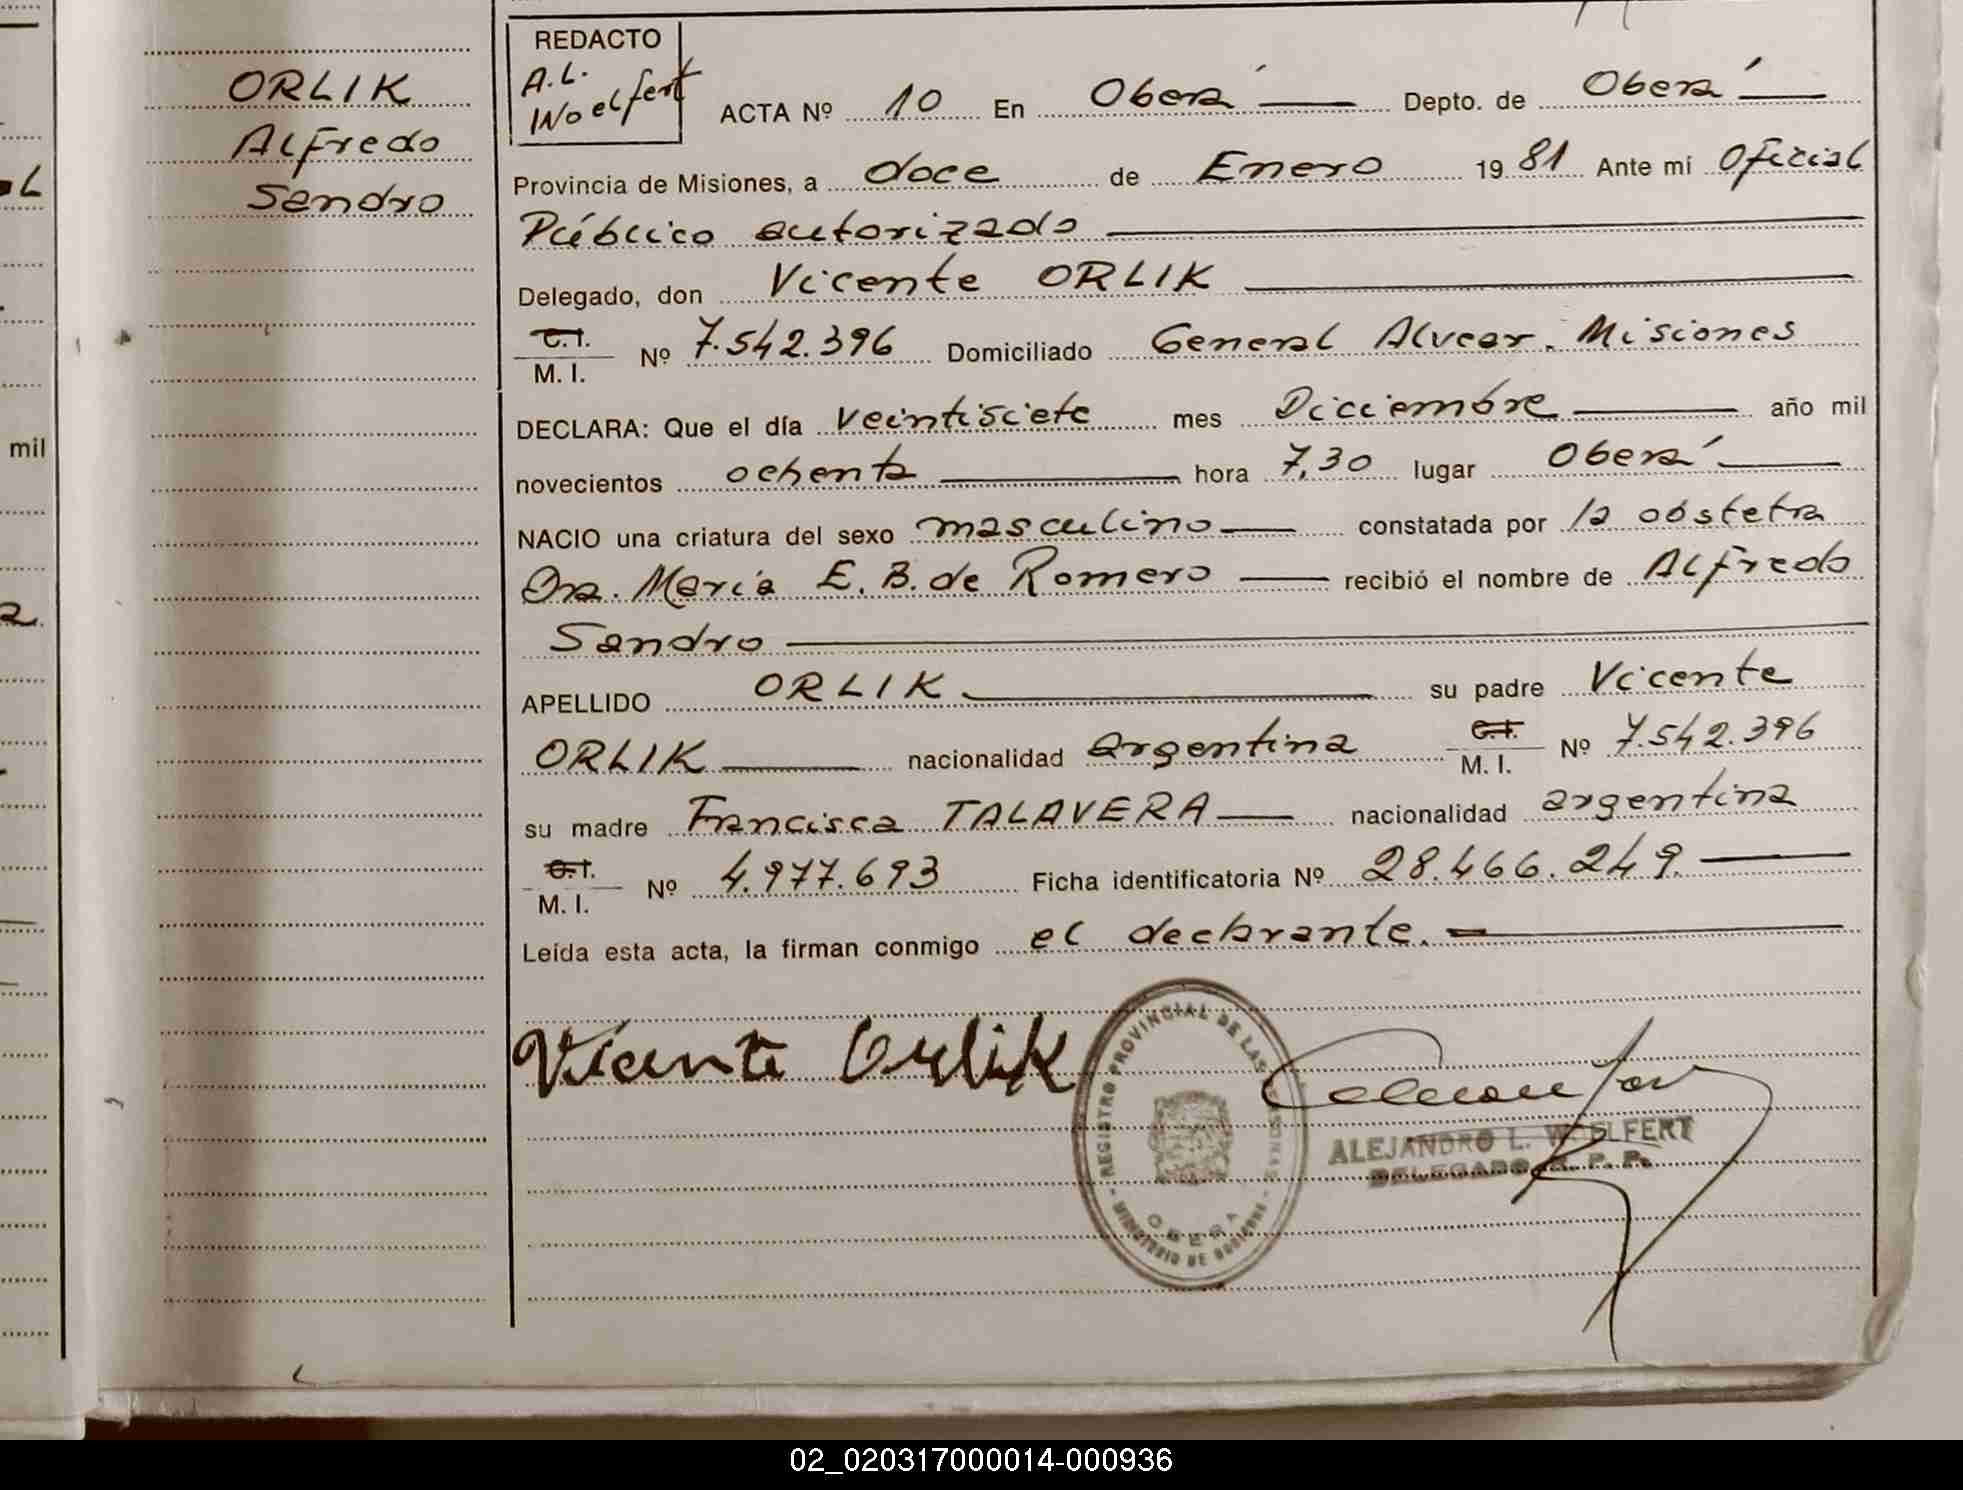 ORLIK
Alfredo
Sandro
al
mil
REDACTO
A.L.
Woelfert
ACTA Nº 10 En Oberá Depto. de Oberá
Provincia de Misiones, a doce de Enero 1981 Ante mí Oficial
Público autorizado
Delegado, don Vicente ORLIK
C.I.
M. I. Nº 7.542.396 Domiciliado General Alvear. Misiones
DECLARA: Que el día veintisiete mes Diciembre año mil
novecientos ochenta hora 7,30 lugar Oberá
NACIO una criatura del sexo masculino constatada por la obstetra
Dra. María E. B. de Romero recibió el nombre de Alfredo
Sandro
APELLIDO ORLIK su padre Vicente
ORLIK nacionalidad argentina C.I. M. I. Nº 7.542.396
su madre Francisca TALAVERA nacionalidad argentina
C.I.
M. I. Nº 4.977.693 Ficha identificatoria Nº 28.466.249.
Leída esta acta, la firman conmigo el declarante.
Vicente Orlik
REGISTRO PROVINCIAL DE LAS PERSONAS
MINISTERIO DE GOBIERNO
OBERA
ALEJANDRO L. WOELFERT
DELEGADO R. P. P.
02_020317000014-000936